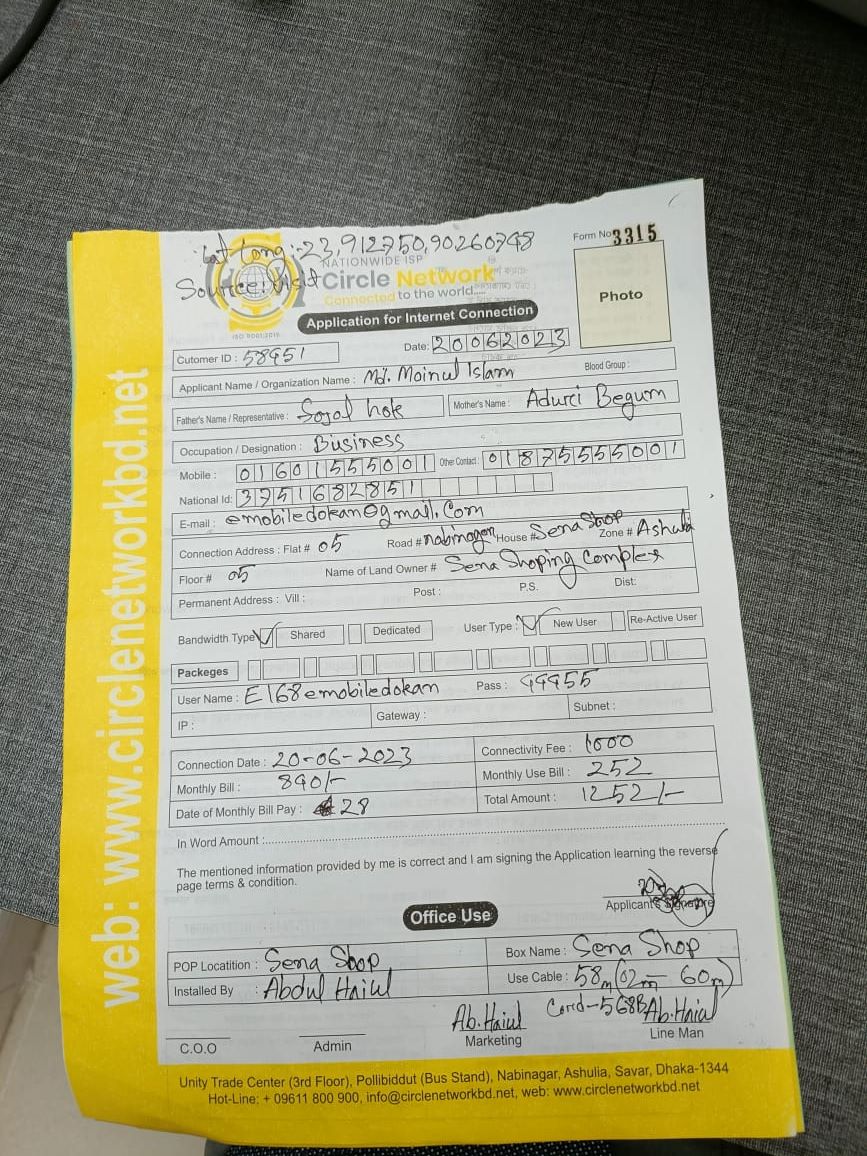 Lat Long :- 23,912750,90260748
Form No 3315
NATIONWIDE ISP
Source: Visit
Circle Network
Connected to the world.....
Photo
ISO 9001:2015
Application for Internet Connection
Cutomer ID : 58951 Date: 20062023
Applicant Name / Organization Name : Md. Moinul Islam Blood Group :
Father's Name / Representative : Sojol hok Mother's Name : Begum
Occupation / Designation : Business
Mobile : 01601555001 Other Contact : 01875555001
National Id: 3751682851
E-mail : emobiledokan@gmail.com
Connection Address : Flat # 05 Road # nabinogen House # Sena Shop Zone # Ashulia
Floor # 05 Name of Land Owner # Sena Shoping Complex
Permanent Address : Vill : Post : P.S. Dist:
Bandwidth Type Shared Dedicated User Type : New User Re-Active User
Packeges
User Name : E168emobiledokan Pass : 99955
IP : Gateway : Subnet :
Connection Date : 20-06-2023 Connectivity Fee : 1000
Monthly Bill : 890/- Monthly Use Bill : 252
Date of Monthly Bill Pay : 28 Total Amount : 1252/-
In Word Amount :
The mentioned information provided by me is correct and I am signing the Application learning the reverse
page terms & condition.
Applicant's Signature
Office Use
POP Locatition : Sena Shop Box Name : Sena Shop
Installed By : Abdul Haiul Use Cable : 58m (02m - 60m)
Ab.Haiul Cord-568B Ab.Haiul
C.O.O Admin Marketing Line Man
Unity Trade Center (3rd Floor), Pollibiddut (Bus Stand), Nabinagar, Ashulia, Savar, Dhaka-1344
Hot-Line: + 09611 800 900, info@circlenetworkbd.net, web: www.circlenetworkbd.net
web: www.circlenetworkbd.net